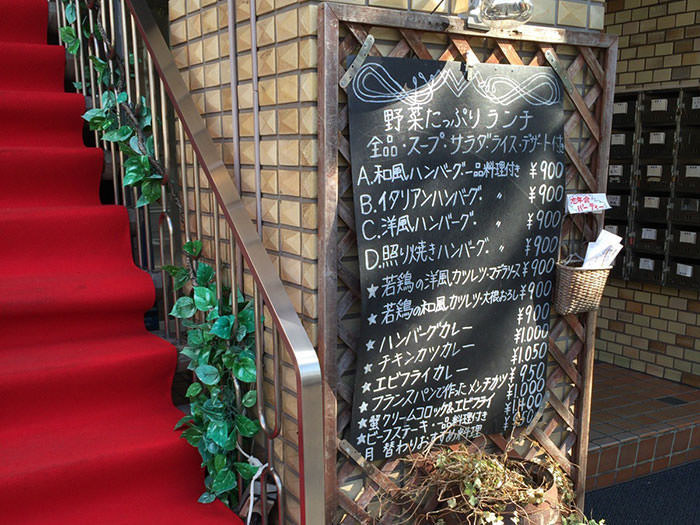 野菜たっぷりランチ
全品・スープ・サラダライス・デザート付
A.和風ハンバーグ一品料理付き ¥900
B.イタリアンハンバーグ・ 〃 ¥900
C.洋風ハンバーグ・ 〃 ¥900
D.照り焼きハンバーグ・ 〃 ¥900
★若鶏の洋風カツレツ・マデラソース ¥900
★若鶏の和風カツレツ・大根おろし ¥900
★ハンバーグカレー ¥900
★チキンカツカレー ¥1.000
★エビフライカレー ¥1.050
★フランスパンで作ったメンチカツ ¥950
★蟹クリームコロッケ&エビフライ ¥1.000
★ビーフステーキ・一品料理付き ¥1.400
月替わりおすすめ料理
忘年会
パーティー